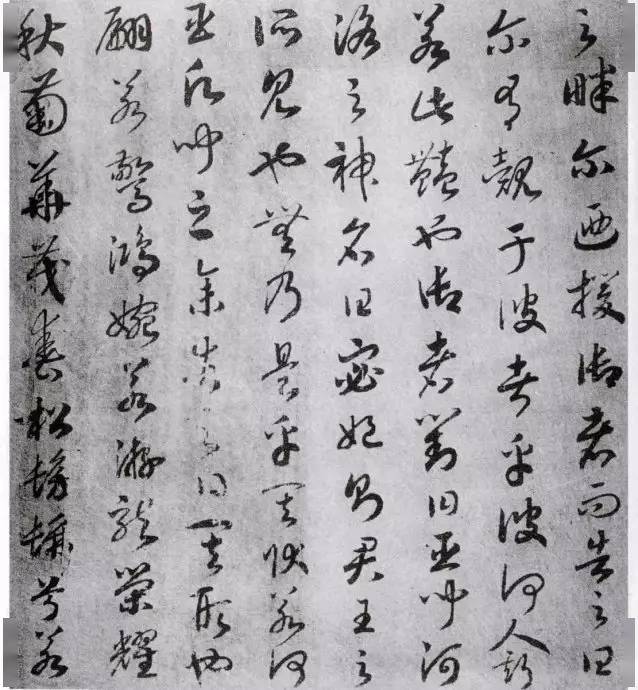 之畔尔迺援御者而告之曰
尔有覿于彼者乎彼何人斯
若此豔也御者對曰臣聞河
洛之神名曰宓妃則君王之
所見也無乃是乎其狀若何
臣願聞之余告之曰其形也
翩若驚鴻婉若游龍榮耀
秋菊華茂春松髣髴兮若